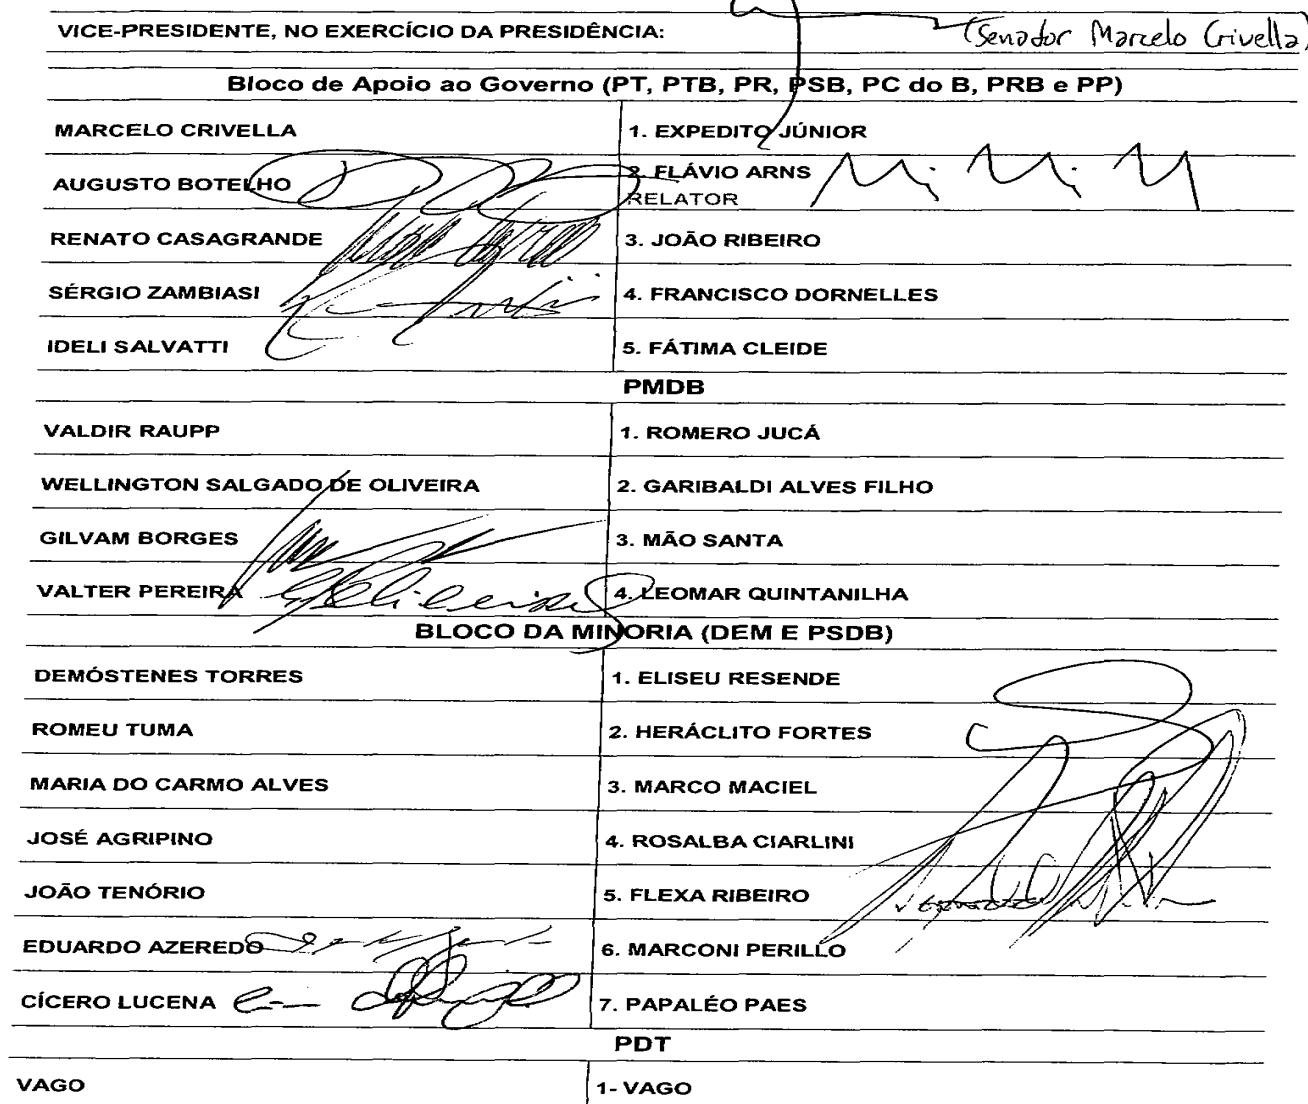 VICE-PRESIDENTE, NO EXERCÍCIO DA PRESIDÊNCIA: (Senador Marcelo Crivella)
Bloco de Apoio ao Governo (PT, PTB, PR, PSB, PC do B, PRB e PP)
MARCELO CRIVELLA 1. EXPEDITO JÚNIOR
AUGUSTO BOTELHO 2. FLÁVIO ARNS
RELATOR
RENATO CASAGRANDE 3. JOÃO RIBEIRO
SÉRGIO ZAMBIASI 4. FRANCISCO DORNELLES
IDELI SALVATTI 5. FÁTIMA CLEIDE
PMDB
VALDIR RAUPP 1. ROMERO JUCÁ
WELLINGTON SALGADO DE OLIVEIRA 2. GARIBALDI ALVES FILHO
GILVAM BORGES 3. MÃO SANTA
VALTER PEREIRA 4. LEOMAR QUINTANILHA
BLOCO DA MINORIA (DEM E PSDB)
DEMÓSTENES TORRES 1. ELISEU RESENDE
ROMEU TUMA 2. HERÁCLITO FORTES
MARIA DO CARMO ALVES 3. MARCO MACIEL
JOSÉ AGRIPINO 4. ROSALBA CIARLINI
JOÃO TENÓRIO 5. FLEXA RIBEIRO
EDUARDO AZEREDO 6. MARCONI PERILLO
CÍCERO LUCENA 7. PAPALÉO PAES
PDT
VAGO 1- VAGO